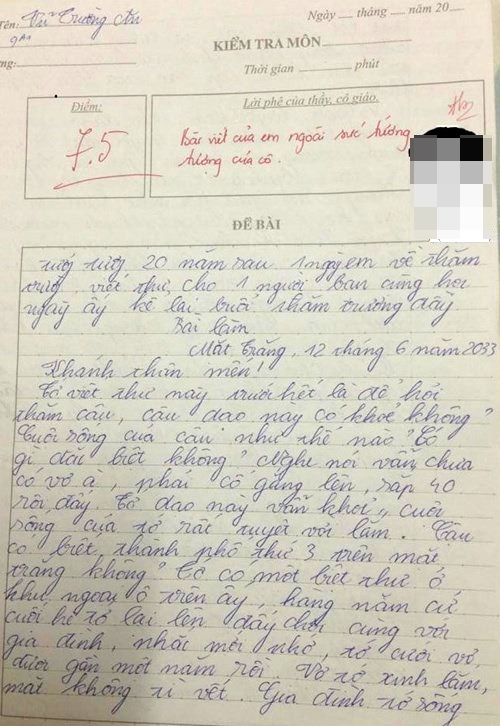 Tên: Vũ Trường An
9A1
ng:
Ngày __ tháng __ năm 20__
KIỂM TRA MÔN
Thời gian ______ phút
Điểm:
7.5
Lời phê của thầy, cô giáo.
Bài viết của em ngoài sức tưởng
tượng của cô.
ĐỀ BÀI
tưởng tượng 20 năm sau 1 ngày em về thăm
trường, viết thư cho 1 người bạn cùng học
ngày ấy kể lại buổi thăm trường đầy
Bài làm
Mặt Trăng, 12 tháng 6 năm 2033
Khanh thân mến!
Tớ viết thư này trước hết là để hỏi
thăm cậu, cậu dạo này có khoẻ không?
Cuộc sống của cậu như thế nào? Có
gì đặc biệt không? Nghe nói vẫn chưa
có vợ ạ, phải cố gắng lên, sắp 40
rồi đấy. Tớ dạo này vẫn khỏi, cuộc
sống của tớ rất tuyệt vời lắm. Cậu
có biết thành phố thứ 3 trên mặt
trăng không? Tớ có một biệt thự ở
khu ngoại ô trên ấy, hàng năm cứ
cuối hè tớ lại lên đấy chơi cùng với
gia đình, nhắc mới nhớ, tớ cưới vợ
được gần một năm rồi. Vợ tớ xinh lắm,
mặt không tì vết. Gia đình tớ sống